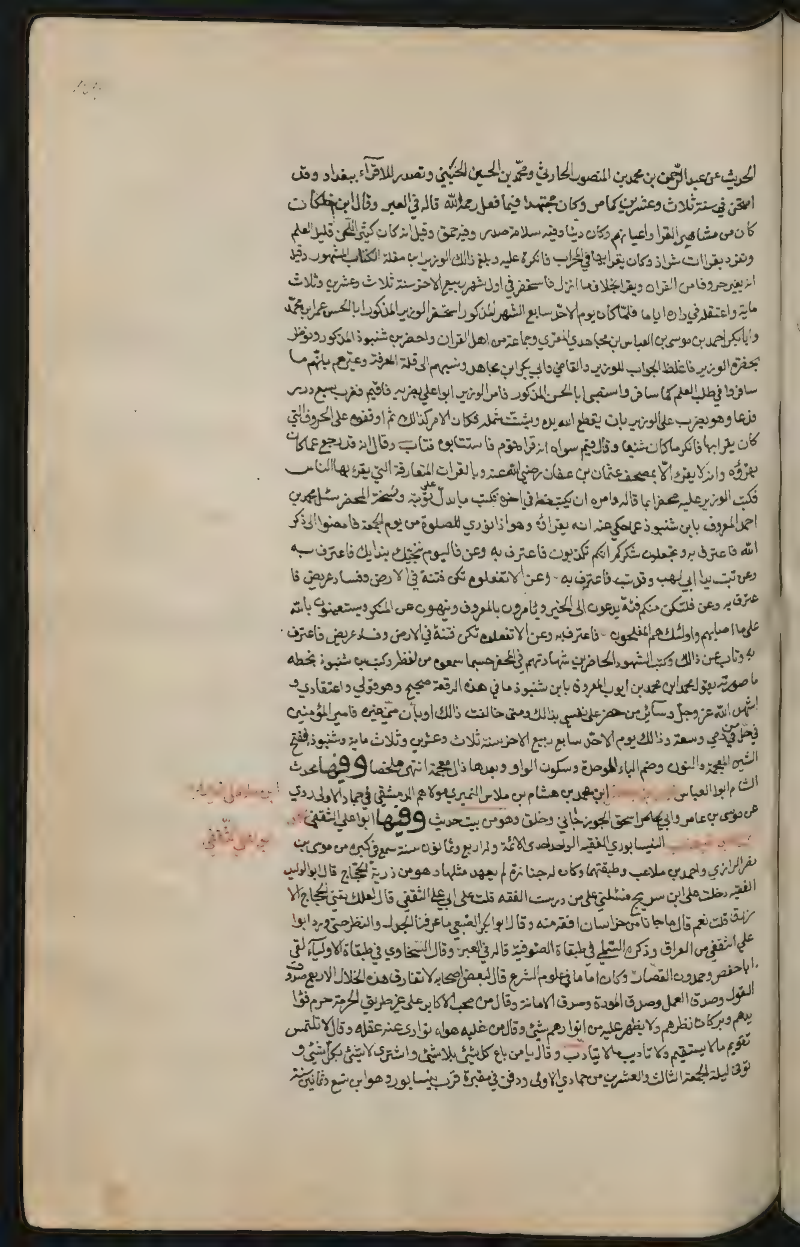 الحديث عن عبد الرحمن بن محمد بن المنصور الحارثي ومحمد بن الحسين الحنيني وتصدر للاقراء ببغداد وقد
امتحن في سنة ثلاث وعشرين كما مر وكان مجتهدا فيما فعل رحمه الله قاله في العبر وقال ابن خلكان
كان من مشاهير القرا واعيانهم وكان دينا وفيه سلامة صدر وفيه حمق وقيل انه كان كثير اللحن قليل العلم
وتفرد بقراات شواذ وكان يقرا بها في المحراب فانكرة عليه وبلغ ذالك الوزير ابن مقلة الكتاب المشهور وقيل
انه يغير حروفا من القران ويقرا بخلاف ما انزل فاستحضر في اول شهر ربيع الاخر سنة ثلاث وعشرين وثلاث
ماية واعتقله في داره اياما فلما كان يوم الاحد سابع الشهر المذكور استحضر الوزير المذكور ابا الحسن عمر ابن محمد
وابا بكر احمد بن موسى بن العباس بن مجاهد المقري وجماعة من اهل القران واحضر بن شنبوذ المذكور ونوظر
بحضرة الوزير فاغلظ الجواب للوزير والقاضي وابي بكر ابن مجاهد ونسبهم الى قلة المعرفة وعيرهم بانهم ما
سافروا في طلب العلم كما سافر واستصبى ابا الحسن المذكور فامر الوزير ابوا علي بضربه فاقيم فضرب سبع درر
فدعا وهو يضرب على الوزير بان يقطع الله يده ويشتت شمله فكان الامر كذالك ثم اوقفوه على الحروف التي
كان يقرا بها فانكر ما كان شنيعا وقال فيم سواه انه قرا به قوم فاستتابوه فتاب وقال انه قد رجع عما كان
يقروه وانه لا يقرء الا بمصحف عثمان بن عفان رضي الله عنه وبالقرات المتعارفة التي يقرء بها الناس
فكتب الوزير عليه محضرا بما قاله وامره ان يكتب بخطه في اخره فكتب ما يدل على توبته ونسخة المحضر سئل محمد بن
احمد المعروف بابن شنبوذ عما حكي عنه انه يقرائه وهو اذا نودي للصلوة من يوم الجمعة فامضوا الى ذكر
الله فاعترف به وتجعلون شكركم انكم تكذبون فاعترف به وعن فاليوم ننجيك بندايك فاعترف به
وعن تبت يدا ابي لهب وقد تب فاعترف به وعن الا تفعلوه تكن فتنة في الارض وفساد عريض فا
عترف به وعن فلتكن منكم فئة يدعون الى الخير ويامرون بالمعروف وينهون عن المنكر ويستعينون بالله
على ما اصابهم واولئك هم المفلحون فاعترف به وعن الا تفعلوه تكن فتنة في الارض وفساد عريض فاعترف
به وتاب عن ذالك وكتب الشهود الحاضرين شهادتهم في المحضر حسبما سمعوه من لفظه وكتب ب شنبوذ بخطه
ما صورته يقول محمد ابن محمد بن ايوب المعروف بابن شنبوذ ما في هذه الرقعة صحيح وهو قولي واعتقادي و
اشهد الله عز وجل وسائر من حضر على نفسي بذالك ومتى خالفت ذالك او بان مني غيره فامير المؤمنين
في حل من دمي وسعة وذالك يوم الاحد سابع ربيع الاخر سنة ثلاث وعشرين وثلاث ماية وشنبوذ بفتح
الشين المعجمة والنون وضم الباء الموحدة وسكون الواو وبعدها ذال معجمة انتهى ملخصا وفيها محدث
الشام ابوا العباس ابن محمد بن هشام بن ملاس النميري مولاهم الدمشقي في جماد الاولى روى
عن موسى بن عامر وابي اسحق الجوزجاني وخلق وهو من بيت حديث وفيها ابوا علي الثقفي
النيسابوري الفقيه الواعظ احد الائمة وله اربع وثمانون سنة سمع في كبره من موسى بن
نصر الرازي واحمد بن ملاعب وطبقتهما وكان له جنازة لم يعهد مثلها وهو من ذرية الحجاج قال ابو الوليد
الفقيه دخلت على ابن سريج فسئلني على من درست الفقه قلت على ابي علي الثقفي قال لعلك يعني الحجاج الا
زرق قلت نعم قال ما جانا من خراسان افقه منه وقال ابوا بكر الضبعي ما عرفنا الجدل والنظر حتى ورد ابوا
علي الثقفي من العراق وذكره السلمي في طبقاة الصوفية قاله في العبر وقال السخاوي في طبقاة الاولياء لقي
ابا حفص وحمدون القصار وكان اماما في علوم الشرع قال لبعض اصحابه لا تفارق هذه الخلال الاربع صدق
القول وصدق العمل وصدق المودة وصدق الامانة وقال من صحب الاكابر على غير طريق الحرمة حرم فوا
يدهم وبركات نظرهم ولا يظهر عليه من انوارهم شئ وقال من غلبه هواه توارى عنه عقله وقال لا تلتمس
تقويم ما لا يستقيم ولا تاديب ما لا يتادب وقال يا من باع كل شئ بلا شئ واشترى لا شئ بكل شئ و
توفى ليلة الجمعة الثالث والعشرين من جمادي الاولى ودفن في مقبرة قرب نيسابور وهو ابن تسع وثمانين سنة
ابو علي الثقفي